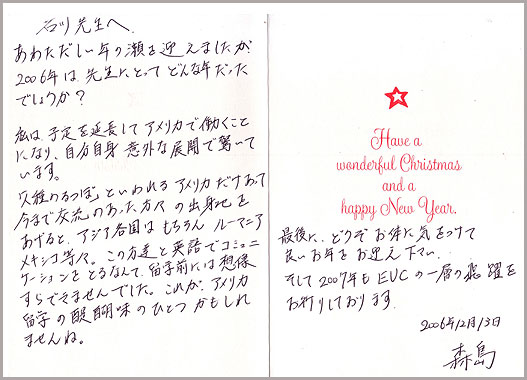 石川先生へ
あわただしい年の瀬を迎えましたが
2006年は先生にとってどんな年だった
でしょうか？
私は、予定を延長してアメリカで働くこと
になり、自分自身 意外な展開で驚いて
います。
「人種のるつぼ」といわれるアメリカだけあって
今まで交流のあった方々の出身地を
あげると、アジア各国はもちろん ルーマニア
メキシコ等々。この方達と英語でコミュニ
ケーションをとるなんて、留学前には想像
すらできませんでした。これが、アメリカ
留学の醍醐味のひとつかもしれ
ませんね。
Have a
wonderful Christmas
and a
happy New Year.
最後に、どうぞお体に気をつけて
良いお年をお迎え下さい。
そして2007年もEUCの一層の飛躍を
お祈りしております。
2006年12月13日
森島